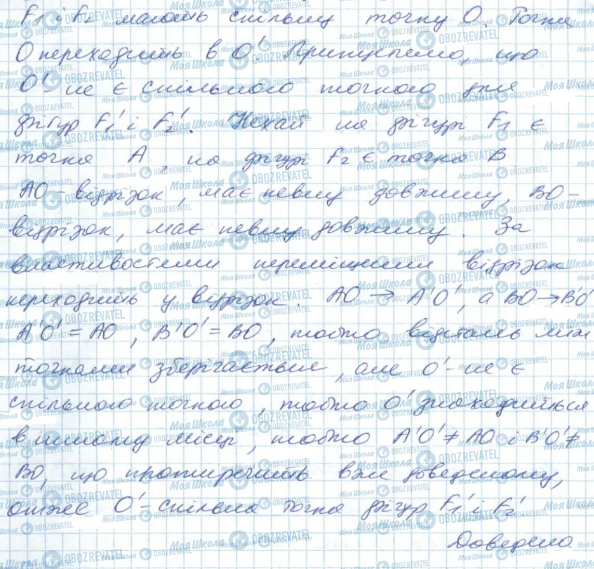 F₁ і F₂ мають спільну точку О. Точка
О переходить в О'. Припустимо, що
О' не є спільною точкою для
фігур F₁' і F₂'. Нехай на фігурі F₁ є
точка А, на фігурі F₂ є точка В
АО - відрізок, має певну довжину, ВО -
відрізок, має певну довжину. За
властивостями переміщення відрізок
переходить у відрізок. АО → А'О', а ВО → В'О'
А'О' = АО, В'О' = ВО, тобто відстань між
точками зберігається, але О' - не є
спільною точкою, тобто О' знаходиться
в іншому місці, тобто А'О' ≠ АО і В'О' ≠
ВО, що протирічить вже доведеному,
отже О' - спільна точка фігур F₁' і F₂'
Доведено.